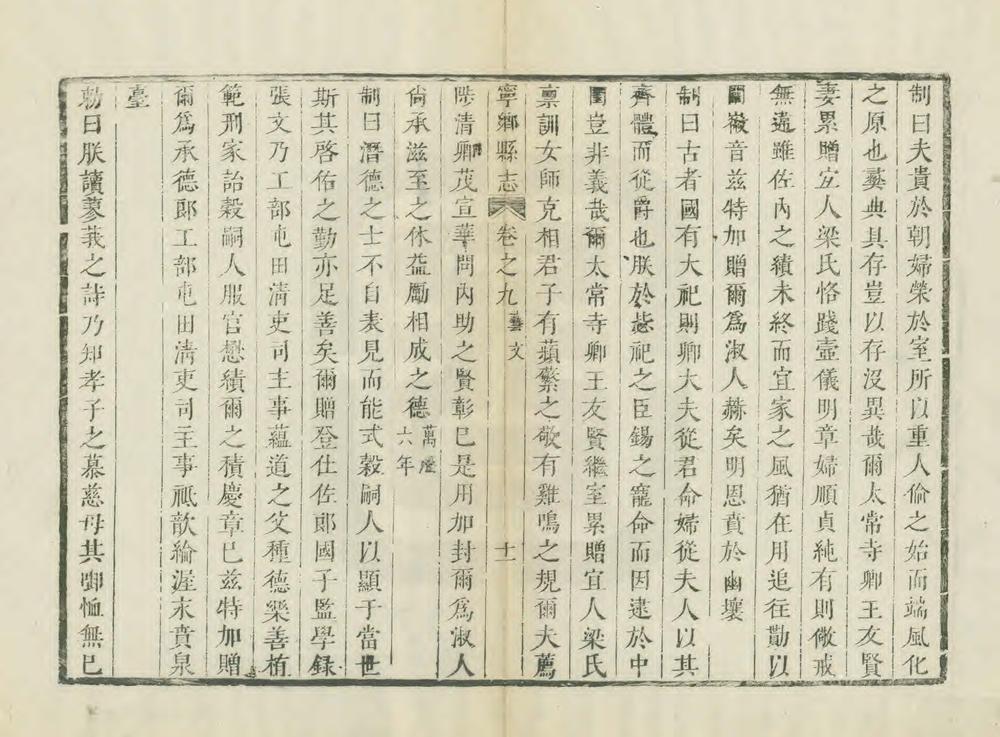 制曰夫貴於朝婦榮於室所以重人倫之始而端風化
之原也彜典其存豈以存沒異哉爾太常寺卿王友賢
妻累贈宜人梁氏恪踐壼儀明章婦順貞純有則儆戒
無違雖佐內之績未終而宜家之風猶在用追徃勩以
闡徽音兹特加贈爾爲淑人赫矣明恩賁於幽壤
制曰古者國有大祀則卿大夫從君命婦從夫人以其
齊體而從爵也朕於毖祀之臣錫之寵命而因逮於中
閨豈非義哉爾太常寺卿王友賢繼室累贈宜人梁氏
禀訓女師克相君子有蘋蘩之敬有雞鳴之規爾夫薦
寧鄉縣志 卷之九 藝文 十一
陟清卿茂宣華問內助之賢彰巳是用加封爾爲淑人
尙承滋至之休益勵相成之德 萬曆六年
制曰潛德之士不自表見而能式穀嗣人以顯于當世
斯其啓佑之勤亦足善矣爾贈登仕佐郞國子監學錄
張文乃工部屯田淸吏司主事蘊道之父種德樂善楕
範刑家詒穀嗣人服官懋績爾之積慶章巳兹特加贈
爾爲承德郞工部屯田淸吏司主事祗歆綸渥永賁泉
臺
勅曰朕讀蓼莪之詩乃知孝子之慕慈母其啣恤無已